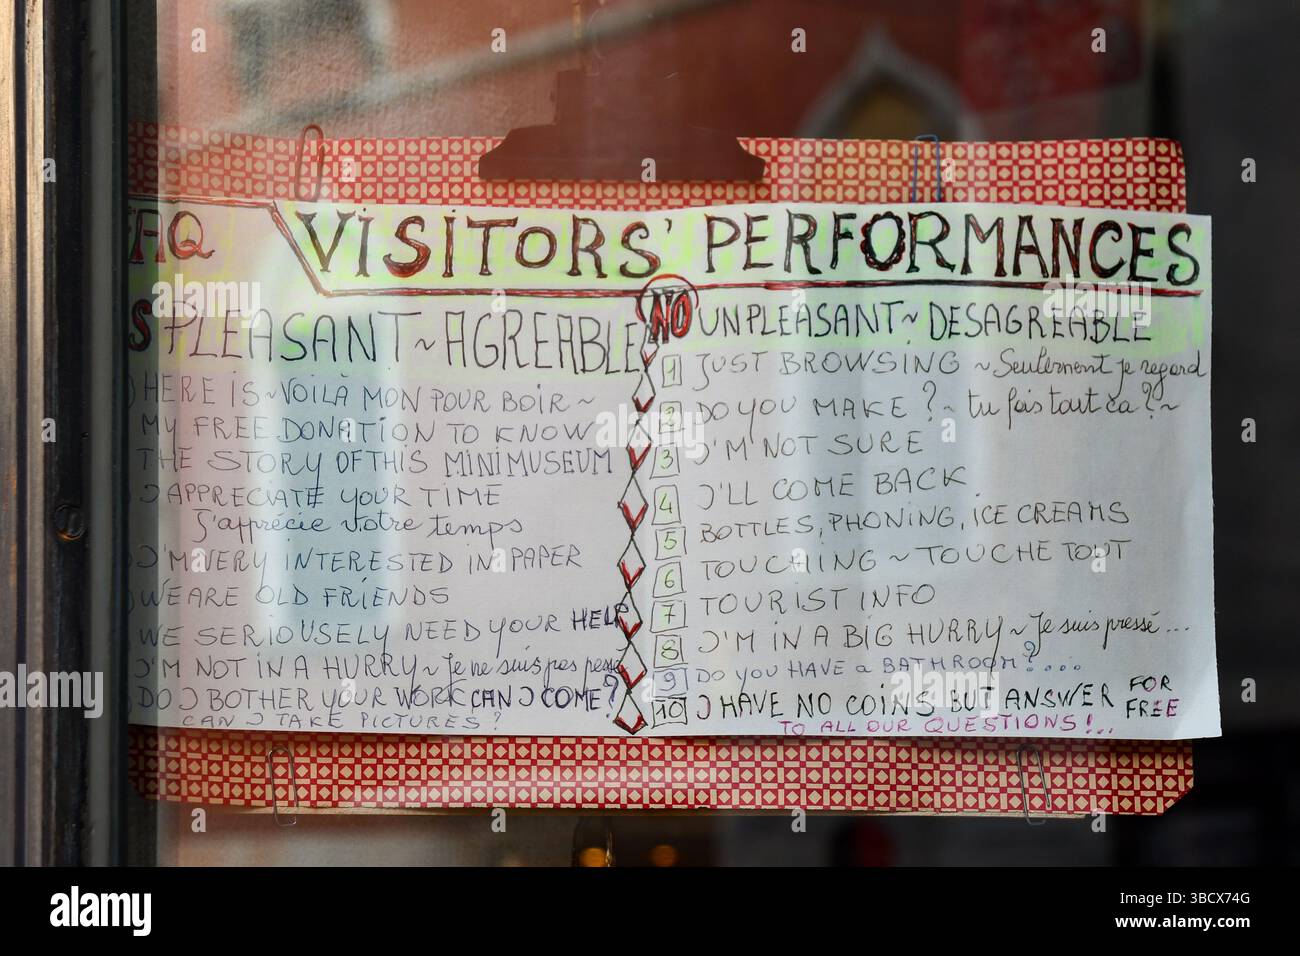 FAQ VISITORS' PERFORMANCES
S PLEASANT ~ AGREABLE
) HERE IS ~ VOILÀ MON POUR BOIR ~
MY FREE DONATION TO KNOW
THE STORY OF THIS MINIMUSEUM
) I APPRECIATE YOUR TIME
J'apprécie votre temps
) I'M VERY INTERESTED IN PAPER
) WE ARE OLD FRIENDS
WE SERIOUSELY NEED YOUR HELP
I'M NOT IN A HURRY ~ Je ne suis pas pessé
) DO I BOTHER YOUR WORK CAN I COME?
CAN I TAKE PICTURES?
NO UNPLEASANT ~ DESAGREABLE
1 JUST BROWSING ~ Seulement je regard
2 DO YOU MAKE? ~ tu fais tout ca? ~
3 I'M NOT SURE
4 I'LL COME BACK
5 BOTTLES, PHONING, ICE CREAMS
6 TOUCHING ~ TOUCHE TOUT
7 TOURIST INFO
8 I'M IN A BIG HURRY ~ Je suis pressé...
9 DO YOU HAVE a BATHROOM?....
10 I HAVE NO COINS BUT ANSWER FOR FREE
TO ALL OUR QUESTIONS!...
alamy
Image ID: 2BCX74G
www.alamy.com